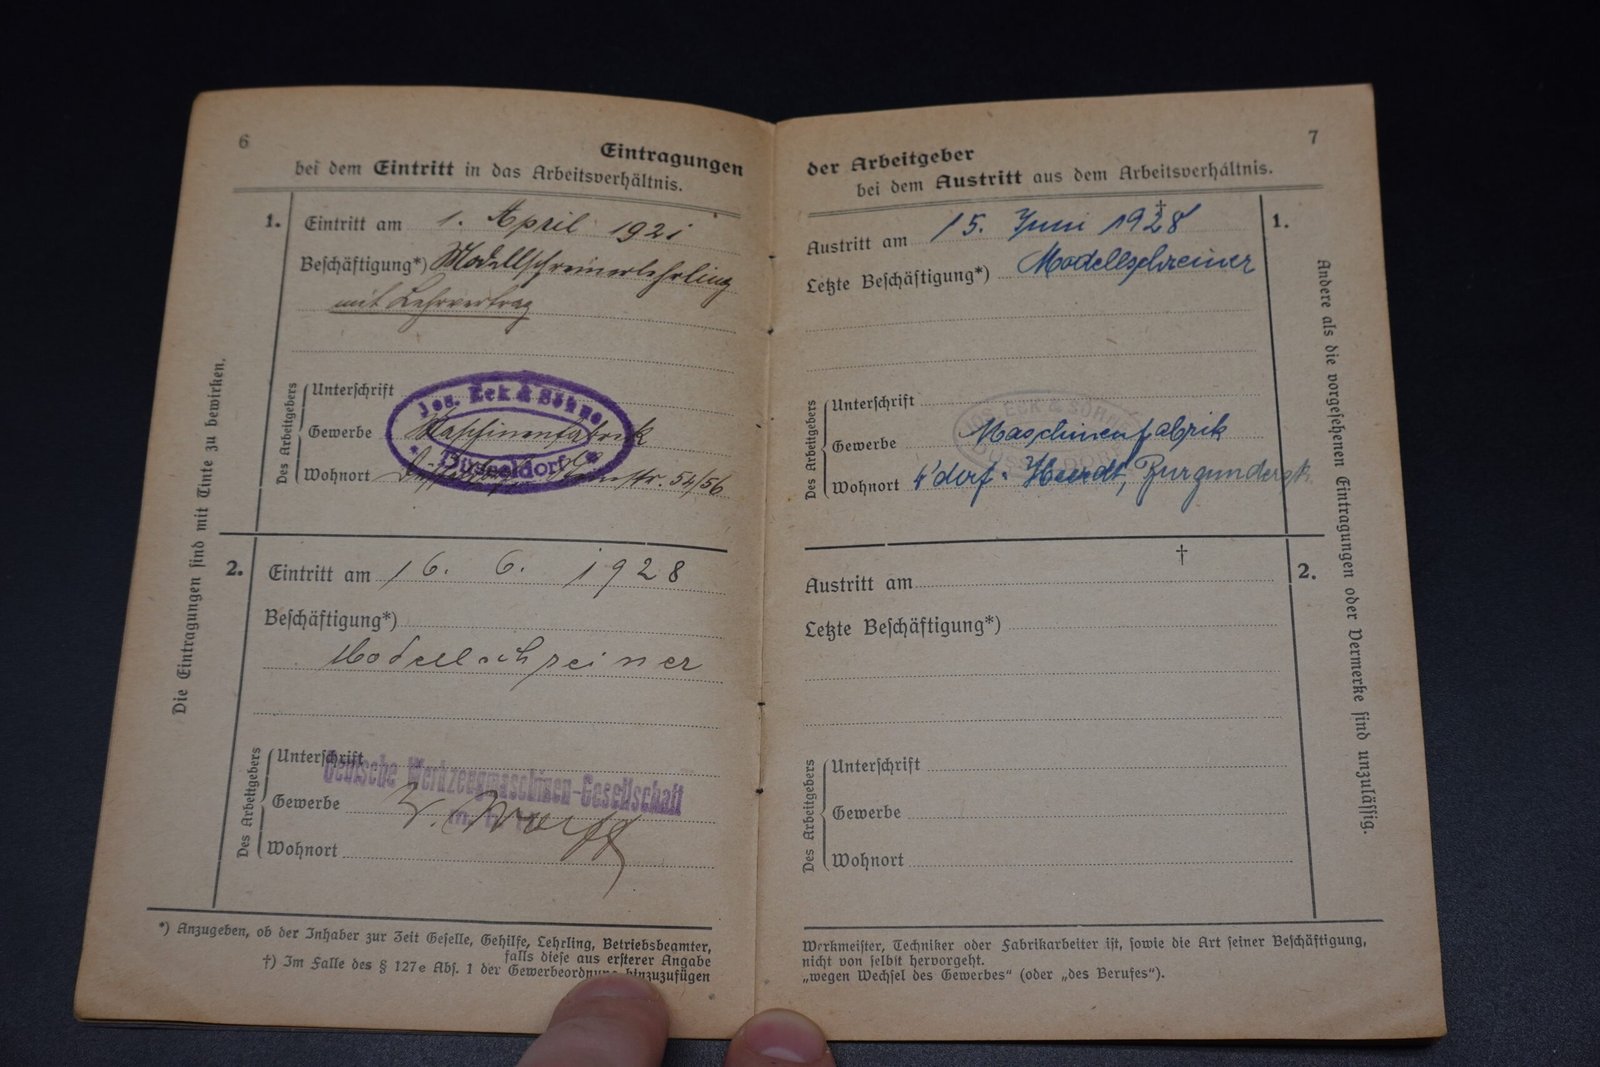 6
Eintragungen
bei dem Eintritt in das Arbeitsverhältnis.
1.
Eintritt am 1. April 1921
Beschäftigung*) Modellschreinerlehrling
mit Lehrvertrag
Des Arbeitgebers
Unterschrift
Jos. Eck & Söhne
Gewerbe Maschinenfabrik
Düsseldorf
Wohnort 54/56
2.
Eintritt am 16. 6. 1928
Beschäftigung*)
Modellschreiner
Des Arbeitgebers
Unterschrift
Deutsche Werkzeugmaschinen-Gesellschaft
Gewerbe
Wohnort
Die Eintragungen sind mit Tinte zu bewirken.
*) Anzugeben, ob der Inhaber zur Zeit Geselle, Gehilfe, Lehrling, Betriebsbeamter,
falls diese aus ersterer Angabe
†) Im Falle des § 127e Abs. 1 der Gewerbeordnung hinzuzufügen
7
der Arbeitgeber
bei dem Austritt aus dem Arbeitsverhältnis.
1.
†
Austritt am 15. Juni 1928
Letzte Beschäftigung*) Modellschreiner
Des Arbeitgebers
Unterschrift
JOS. ECK & SÖHNE
Gewerbe Maschinenfabrik
DÜSSELDORF
Wohnort D'dorf-Heerdt, Burgunderstr.
2.
†
Austritt am
Letzte Beschäftigung*)
Des Arbeitgebers
Unterschrift
Gewerbe
Wohnort
Andere als die vorgesehenen Eintragungen oder Vermerke sind unzulässig.
Werkmeister, Techniker oder Fabrikarbeiter ist, sowie die Art seiner Beschäftigung,
nicht von selbst hervorgeht.
„wegen Wechsel des Gewerbes“ (oder „des Berufes“).